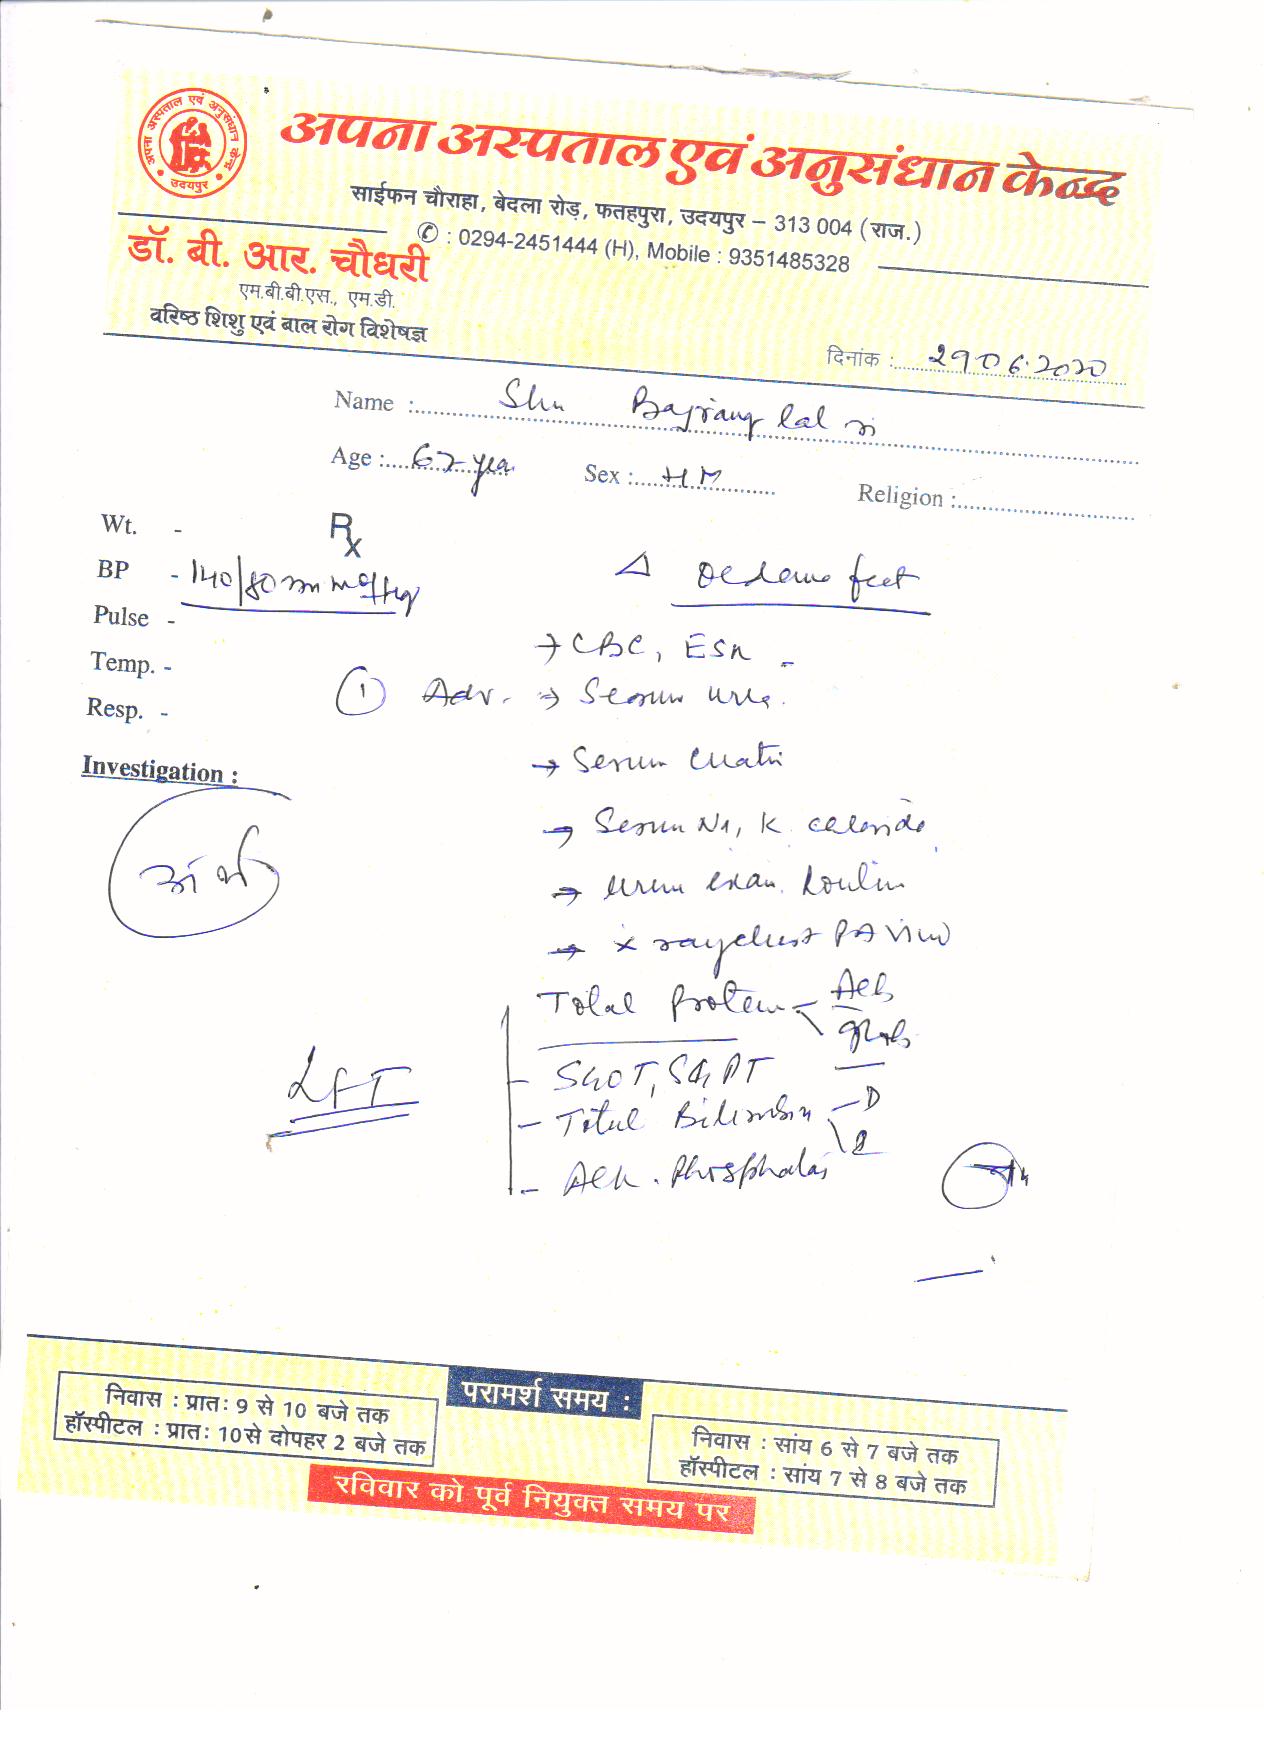 अपना अस्पताल एवं अनुसंधान केन्द्र
उदयपुर
अपना अस्पताल एवं अनुसंधान केन्द्र
साईफन चौराहा, बेदला रोड़, फतहपुरा, उदयपुर – 313 004 (राज.)
✆ : 0294-2451444 (H), Mobile : 9351485328
डॉ. बी. आर. चौधरी
एम.बी.बी.एस., एम.डी.
वरिष्ठ शिशु एवं बाल रोग विशेषज्ञ
दिनांक : 29 06.2020
Name : Shri Bajrang lal
Age : 67 year Sex : M Religion :
Wt. - Rx
BP - 140/80 mm Hg Δ Oedema feet
Pulse -
→ CBC, ESR
Temp. -
① Adv. → Serum urea
Resp. -
→ Serum Creatin
Investigation :
→ Serum Na, K. chloride
→ urine exam. Routine
→ X ray chest PA view
Total Protein Alb
Glob
LFT
- SGOT, SGPT
- Total Bilirubin D
- Alk. Phosphatas
परामर्श समय :
निवास : प्रातः 9 से 10 बजे तक
हॉस्पीटल : प्रातः 10 से दोपहर 2 बजे तक
निवास : सांय 6 से 7 बजे तक
हॉस्पीटल : सांय 7 से 8 बजे तक
रविवार को पूर्व नियुक्त समय पर